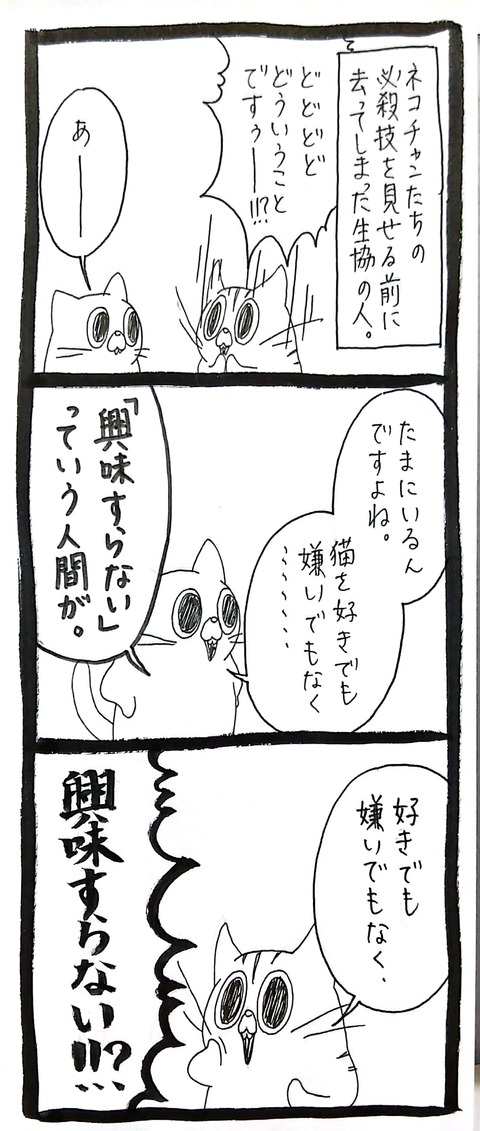 ネコチャンたちの
必殺技を見せる前に
去ってしまった生協の人。
どどどど
どういうこと
ですぅー!!?
あー
たまにいるん
ですよね。
猫を好きでも
嫌いでもなく
……
「興味すらない」
っていう人間が。
好きでも
嫌いでもなく、
興味すらない!!!?